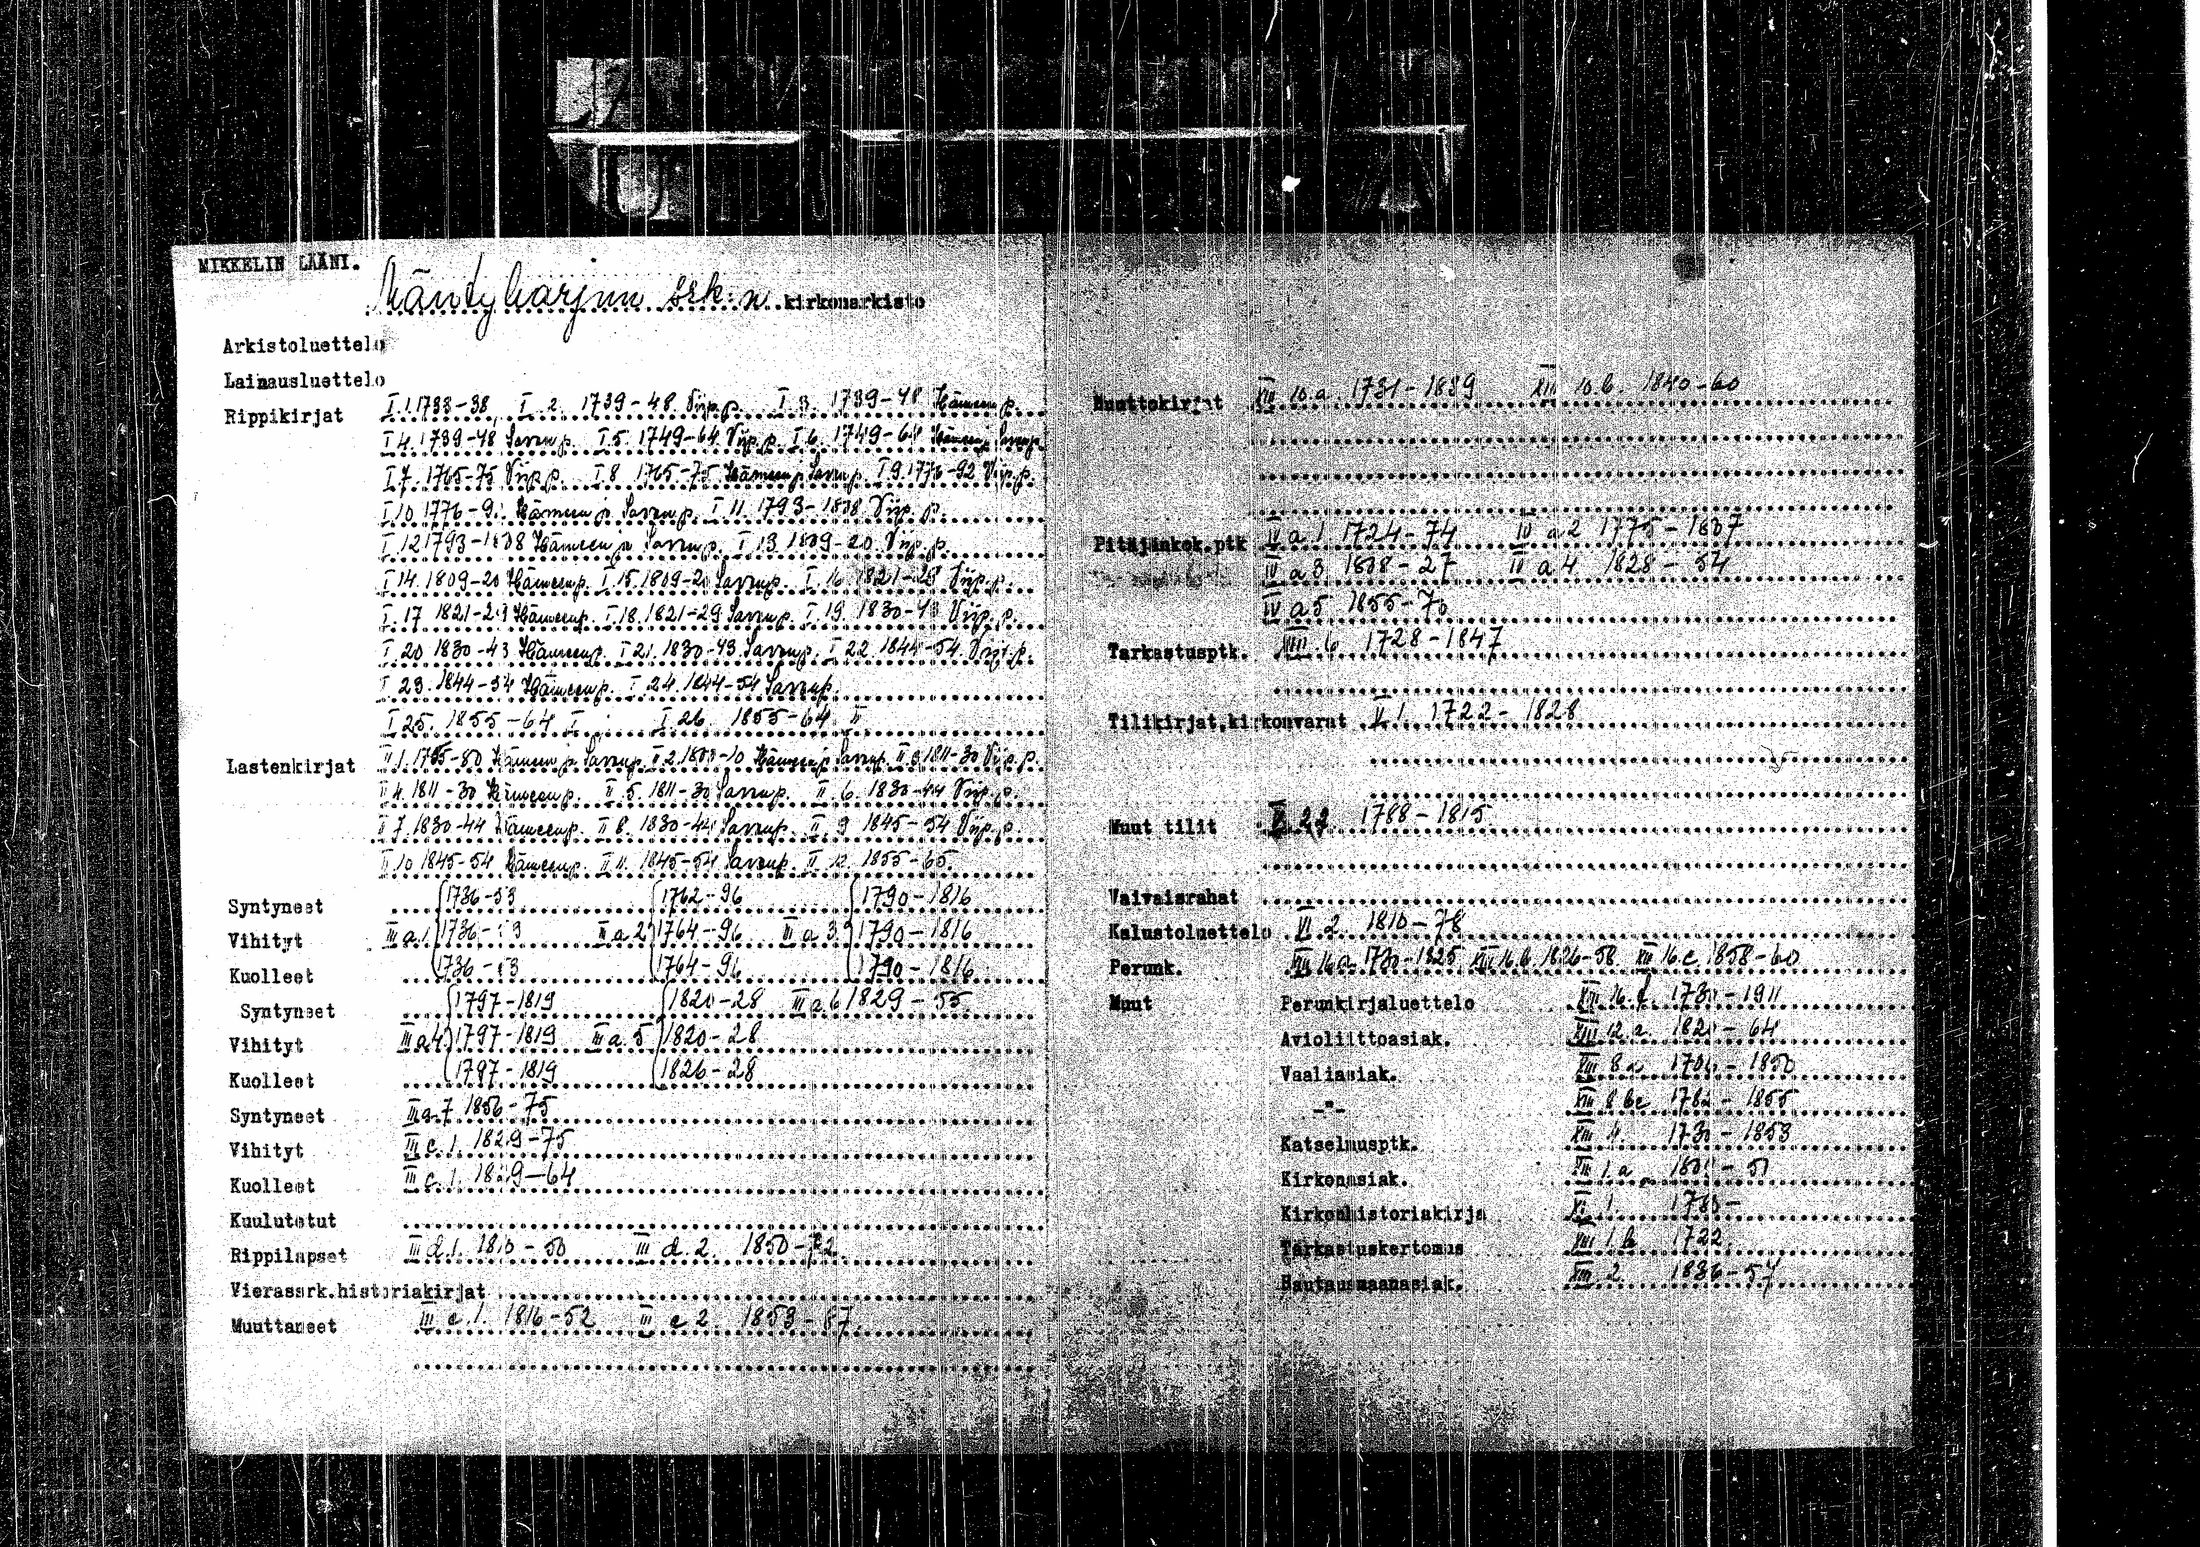 MIKKELIN LÄÄNI.
Mäntyharjun srk:n kirkonarkisto
Arkistoluettelo
Lainausluettelo
Rippikirjat I.1.1733-38, I.2. 1739-48 Viip.p. I.3. 1739-48 Hämeen p.
I.4.1739-48 Savon p. I.5. 1749-64 Viip.p. I.6. 1749-64 Hämeen p. Savon p.
I.7. 1765-75 Viip.p. I.8 1765-75 Hämeen p. Savon p. I.9.1776-92 Viip.p.
I.10 1776-9 Hämeen ja Savon p. I.11. 1793-1808 Viip. p.
I.12 1793-1808 Hämeen ja Savon p. I 13 1809-20 Viip.p.
I.14.1809-20 Hämeen p. I.15.1809-20 Savon p. I.16. 1821-29 Viip.p.
I.17 1821-29 Hämeen p. I.18.1821-29 Savon p. I.19. 1830-43 Viip.p.
I 20 1830-43 Hämeen p. I 21.1830-43 Savon p. I 22.1844-54 Viip.p.
I 23.1844-54 Hämeen p. I 24.1844-54 Savon p.
I 25. 1855-64 I I 26. 1855-64 II
Lastenkirjat II.1. Hämeen ja Savon p. II 2. Hämeen ja Savon p. II 3 1811-30 Viip.p.
II 4. 1811-30 Hämeen p. II.5. 1811-30 Savon p. II.6. 1830-44 Viip.p.
II 7.1830-44 Hämeen p. II 8. 1830-44 Savon p. II 9 1845-54 Viip.p.
II 10 1845-54 Hämeen p. II 11. 1845-54 Savon p. II 12. 1855-65.
Syntyneet 1736-53 1762-96 1790-1816
Vihityt III a.1 1736-53 III a 2 1764-96 III a 3 1790-1816
Kuolleet 1736-53 1764-96 1790-1816
Syntyneet 1797-1819 1820-28 III a 6 1829-55
Vihityt III a 4 1797-1819 III a.5 1820-28
Kuolleet 1797-1819 1826-28
Syntyneet III a.7 1856-75
Vihityt III c.1. 1829-75
Kuolleet III c.1. 1829-64
Kuulutetut
Rippilapset III d.1. 1810-50 III d.2. 1850-72
Vierassrk.historiakirjat
Muuttaneet III e.1. 1816-52 III e 2. 1853-87.
Muuttokirjat XIII 10.a. 1731-1839 XIII 10.b. 1840-60
Pitäjänkok.ptk IV a 1 1724-74 IV a 2 1775-1807
IV a 3 1808-27 IV a 4 1828-54
IV a 5 1855-70
Tarkastusptk. 1728-1847
Tilikirjat,kirkonvarat V.1. 1722-1828
Muut tilit 1788-1815
Vaivaisrahat
Kalustoluettelo VI 2 1810-78
Perunk. XIII 16 a 1730-1825 XIII 16.b.1826-58 XIII 16.c.1858-60
Muut Perunkirjaluettelo -1911
Avioliittoasiak. XIII 12.a. 1820-64
Vaaliasiak. XIII 8 a -1850
-"- XIII 8 bc 1782-1855
Katselmusptk. XIII 4. 1730-1853
Kirkonasiak. XIII 1.a
Kirkonhistoriakirja XI 1.
Tarkastuskertomus XIII 1.b 1722.
Hautausmaanasiak. XIII 2 1836-57